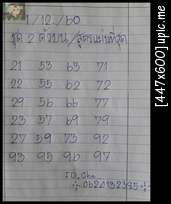 1/12/60
ชุด 2 ตัวบน/สูตรแม่นที่สุด
21 53 63 71
22 55 62 72
29 56 66 77
23 57 69 79
27 59 73 92
93 95 96 97
[447x600] upic.me